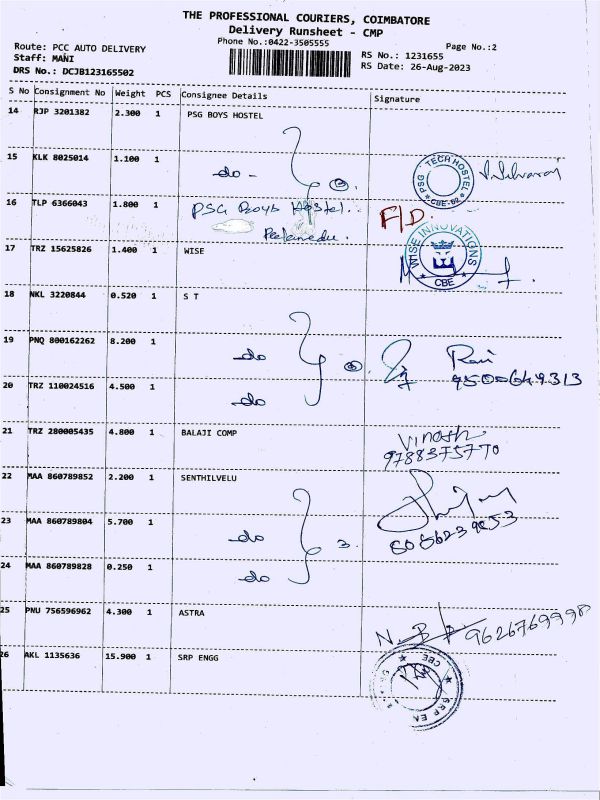 THE PROFESSIONAL COURIERS, COIMBATORE
Delivery Runsheet - CMP
Phone No.:0422-3505555
Page No.:2
Route: PCC AUTO DELIVERY
Staff: MANI
DRS No.: DCJB123165502
RS No.: 1231655
RS Date: 26-Aug-2023
S No Consignment No Weight PCS Consignee Details Signature
14 RJP 3201382 2.300 1 PSG BOYS HOSTEL
15 KLK 8025014 1.100 1 -do- 3.
PSG TECH HOSTEL CBE-02
16 TLP 6366043 1.800 1 PSG Boys Hostel. F/D.
Peelamedu.
17 TRZ 15625826 1.400 1 WISE
WISE INNOVATIONS CBE
18 NKL 3220844 0.520 1 S T
19 PNQ 800162262 8.200 1 -do Ravi
20 TRZ 110024516 4.500 1 -do
21 TRZ 280005435 4.800 1 BALAJI COMP Vinosh.
9788375770
22 MAA 860789852 2.200 1 SENTHILVELU
23 MAA 860789804 5.700 1 -do 3.
24 MAA 860789828 0.250 1 -do
25 PNU 756596962 4.300 1 ASTRA
9626769998
26 AKL 1135636 15.900 1 SRP ENGG
CBE